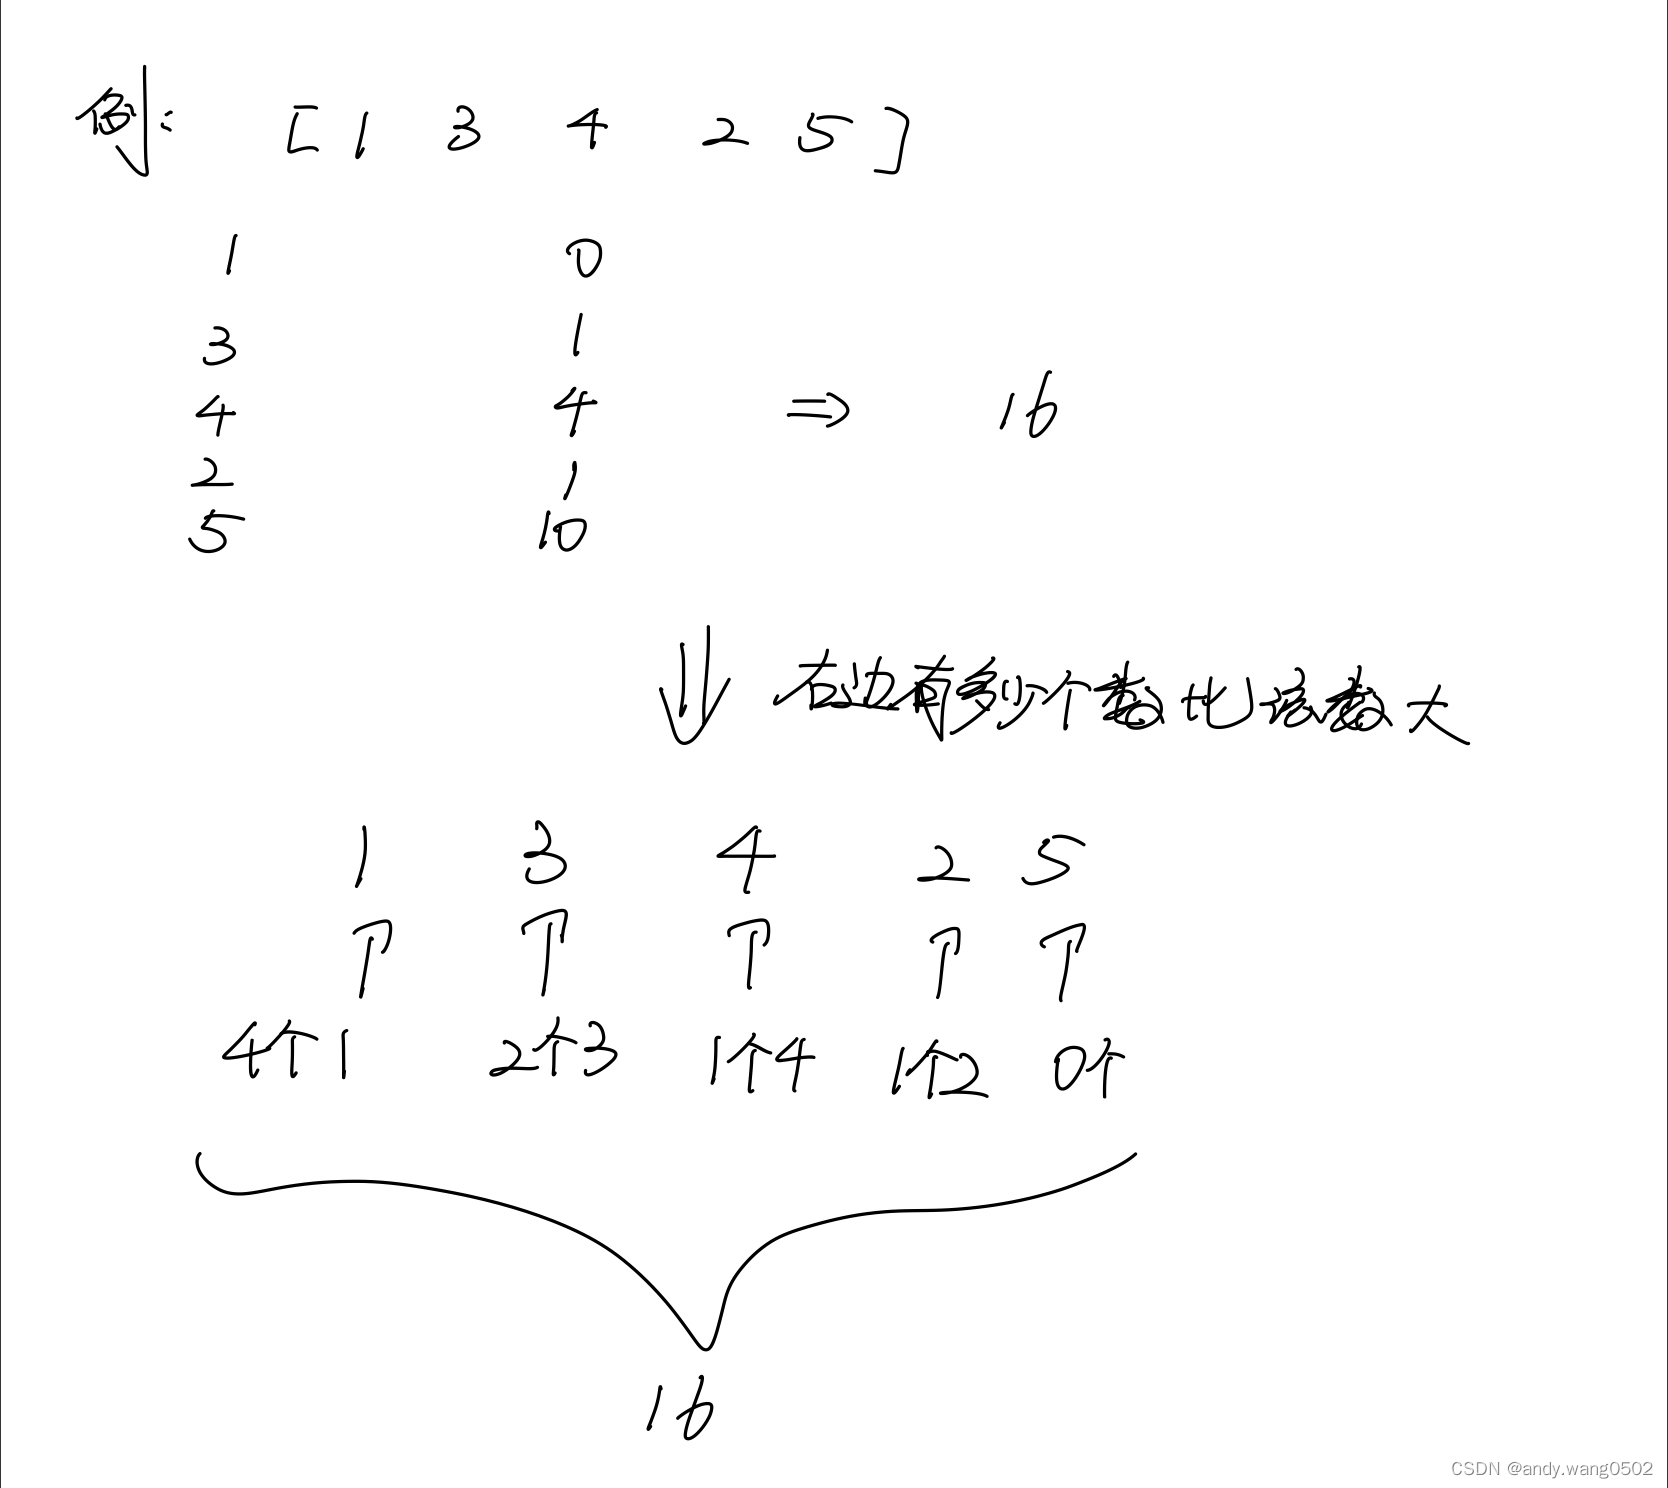 例: [1 3 4 2 5]
1 0
3 1
4 4 ⇒ 16
2 1
5 10
右边有多少个数比该数大
1 3 4 2 5
4个1 2个3 1个4 1个2 0个
16
CSDN @andy.wang0502